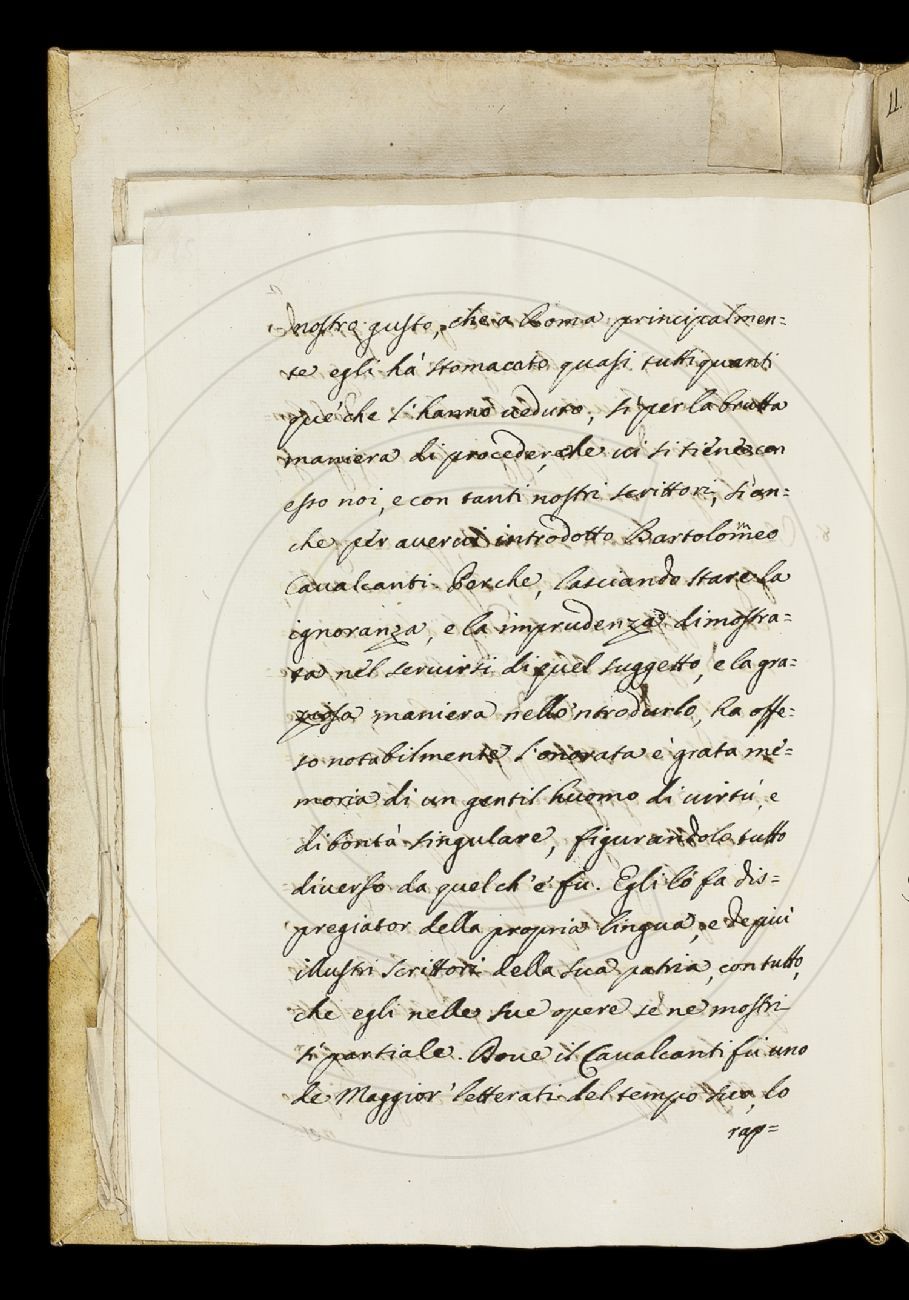 nostro gusto, che a Roma principalmen=
te egli hà stomacato quasi tutti quanti
que' che l'hanno ueduto, sì per la brutta
maniera di procedere, che ui si tiene con
esso noi, e con tanti nostri scrittori, sì an=
che per auerui introdotto Bartolommeo
Caualcanti. Perche, lasciando stare la
ignoranza, e la imprudenza dimostra=
ta nel seruirsi di quel suggetto, e la gra=
ziosa maniera nello 'ntrodurlo, ha offe=
so notabilmente l'onorata e grata me=
moria di un gentil huomo di uirtù, e
di bontà singulare, figurandolo tutto
diuerso da quel ch' e' fu. Egli lo fa dis=
pregiator della propria lingua, e de più
illustri scrittori della sua patria, con tutto,
che egli nelle sue opere se ne mostri
sì partiale. Doue il Caualcanti fù uno
de Maggior' letterati del tempo suo, lo
rap=
11.